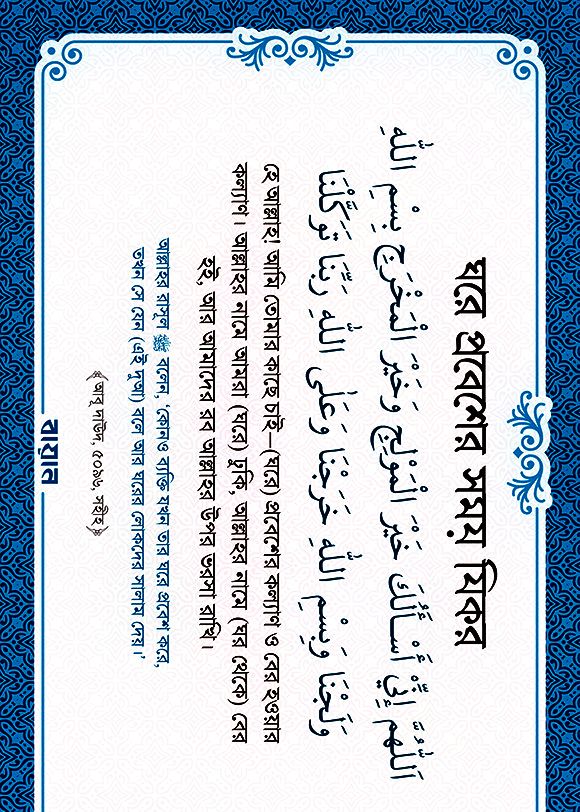 ঘরে প্রবেশের সময় যিকর
اَللّٰهُمَّ إِنِّيْ أَسْأَلُكَ خَيْرَ الْمَوْلِجِ وَخَيْرَ الْمَخْرَجِ بِسْمِ اللّٰهِ
وَلَجْنَا وَبِسْمِ اللّٰهِ خَرَجْنَا وَعَلَى اللّٰهِ رَبِّنَا تَوَكَّلْنَا
হে আল্লাহ! আমি তোমার কাছে চাই—(ঘরে) প্রবেশের কল্যাণ ও বের হওয়ার
কল্যাণ। আল্লাহর নামে আমরা (ঘরে) ঢুকি, আল্লাহর নামে (ঘর থেকে) বের
হই, আর আমাদের রব আল্লাহর উপর ভরসা রাখি।
আল্লাহর রাসূল ﷺ বলেন, ‘কোনও ব্যক্তি যখন তার ঘরে প্রবেশ করে,
তখন সে যেন (এই দুআ) বলে আর ঘরের লোকদের সালাম দেয়।’
﴾আবূ দাউদ, ৫০৯৬, সহীহ﴿
বায়ান